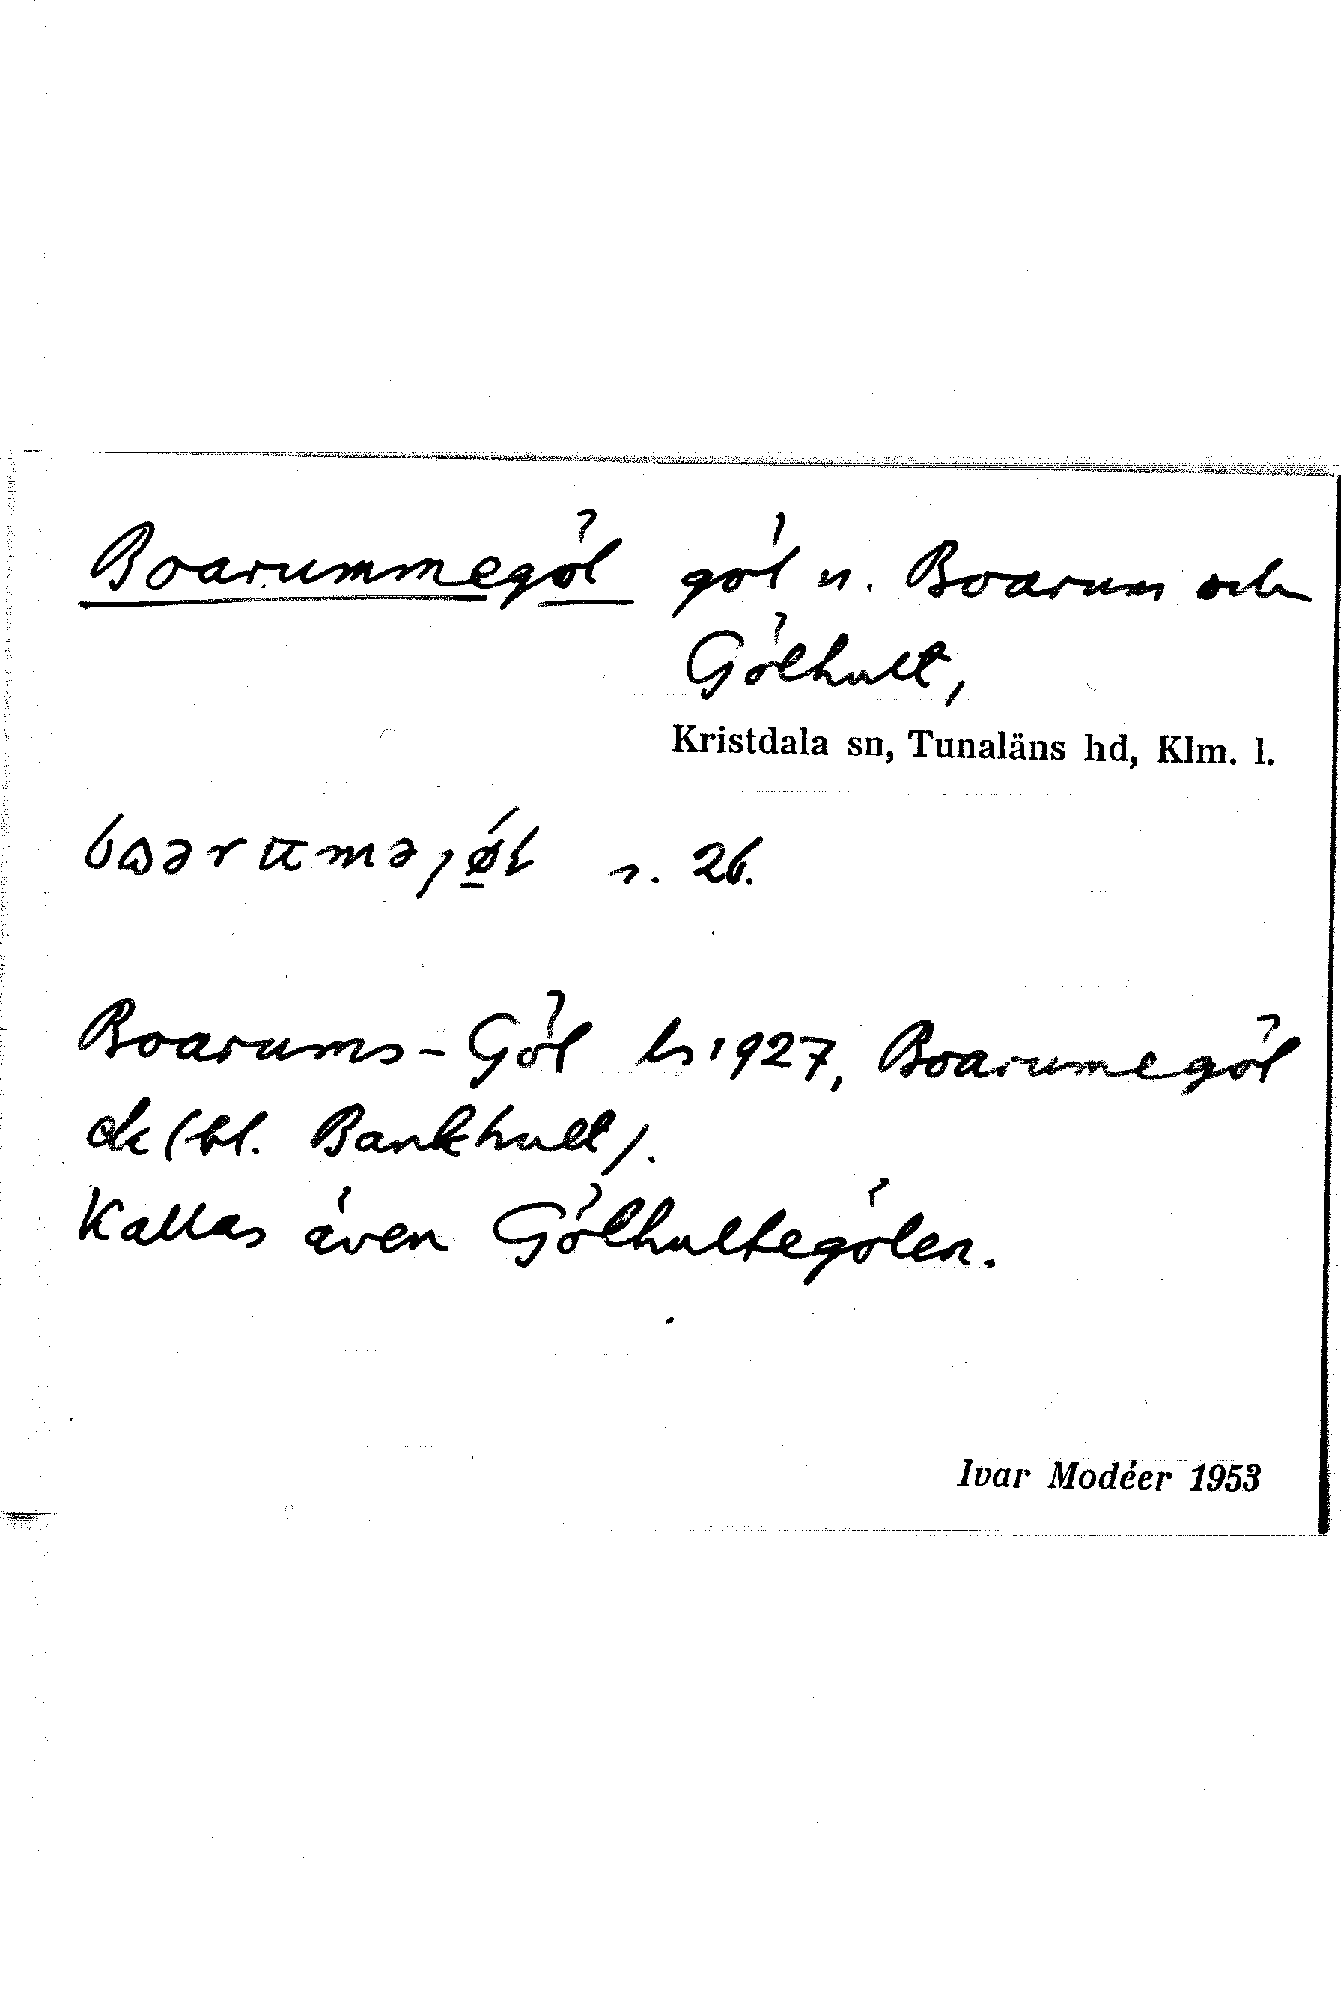 Boarummegöl göl n. Boarum och
Gölhult,
Kristdala sn, Tunaläns hd, Klm. l.
s. 26.
Boarums-Göl ls 1927, Boarumegöl
ek (bl. Bankhult).
Kallas även Gölhultegölen.
Ivar Modéer 1953